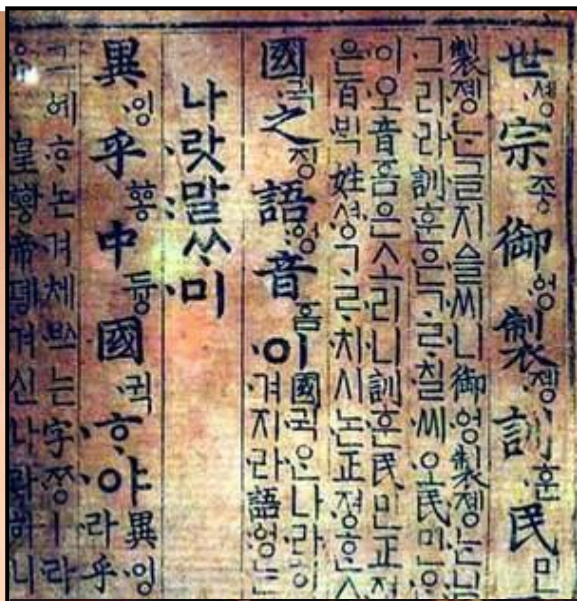 世솅宗종御엉製졩訓훈民민
製졩는글지ᅀᅳᆯ씨니御엉製졩는님
그리라訓훈은ᄀᆞᄅᆞ칠씨오民민은
이오音ᅙᅳᆷ은소리니訓훈民민正
은百ᄇᆡᆨ姓셩ᄀᆞᄅᆞ치시논正졍ᄒᆞᆫ
國귁之징語ᅌᅥᆼ音ᅙᅳᆷ이國귁ᄋᆞᆫ나라히
라語ᅌᅥᆼ는
나랏말ᄊᆞ미
異잉乎ᅘᅩᆼ中듕國귁ᄒᆞ야異잉
라乎
그ᅌᅦᄒᆞ논겨체ᄡᅳ는字ᄍᆞᆼㅣ라
皇황帝뎽겨신나라히니